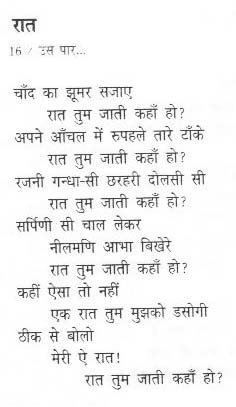 रात
16 / उस पार...
चाँद का झूमर सजाए
रात तुम जाती कहाँ हो?
अपने आँचल में रुपहले तारे टाँके
रात तुम जाती कहाँ हो?
रजनी गन्धा-सी छरहरी दोलसी सी
रात तुम जाती कहाँ हो?
सर्पिणी सी चाल लेकर
नीलमणि आभा बिखेरे
रात तुम जाती कहाँ हो?
कहीं ऐसा तो नहीं
एक रात तुम मुझको डसोगी
ठीक से बोलो
मेरी ऐ रात!
रात तुम जाती कहाँ हो?